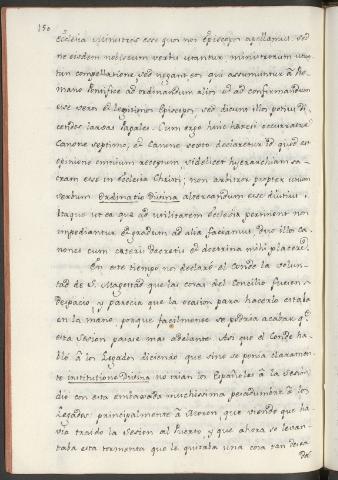 150
Ecclesia Ministros esse quos nos Episcopos apellamus. sed
ne eisdem nobiscum verbis utantur ministrorum utun
tur compellatione, sed negant eos qui assumuntur à Ro-
mano Pontifice ad ordinandum alios et ad confirmandum
esse veros et legitimos Episcopos, sed dicunt illos potius di-
cendos larvas Papales. Cum ergo huic hæresi occurratur
Canone septimo, et Canone sexto declaretur id quod est
opinione omnium receptum videlicet hyerarchiam sa-
cram esse in ecclesia Christi; non arbitror propter unum
verbum Ordinatio Divina altercandum esse diutius.
Itaque ut ea que ad utilitatem Ecclesiæ pertinent non
impediantur et gradum ad alia faciamus, duo illos ca-
nones cum cæteris decretis et doctrina mihi placere.
En este tiempo nos declaró el Conde la volun-
tad de S. Magestad que las cosas del Concilio fuesen
despacio, y parecia que la ocasion para hacerlo estaba
en la mano, porque facilmente se podria acabar q.e
esta Sesion pasase mas adelante. Asi que el Conde ha-
bló à los Legados diciendo que sino se ponia claramen-
te institutione Divina no irian los Españoles à la Sesion:
dió con esta embaxada muchissima pesadumbre à los
Legados: principalmente à Moron que viendo que ha-
via traido la Sesion al Puerto, y que ahora se levan-
taba esta tormenta que le quitaba una cosa tan desea
da